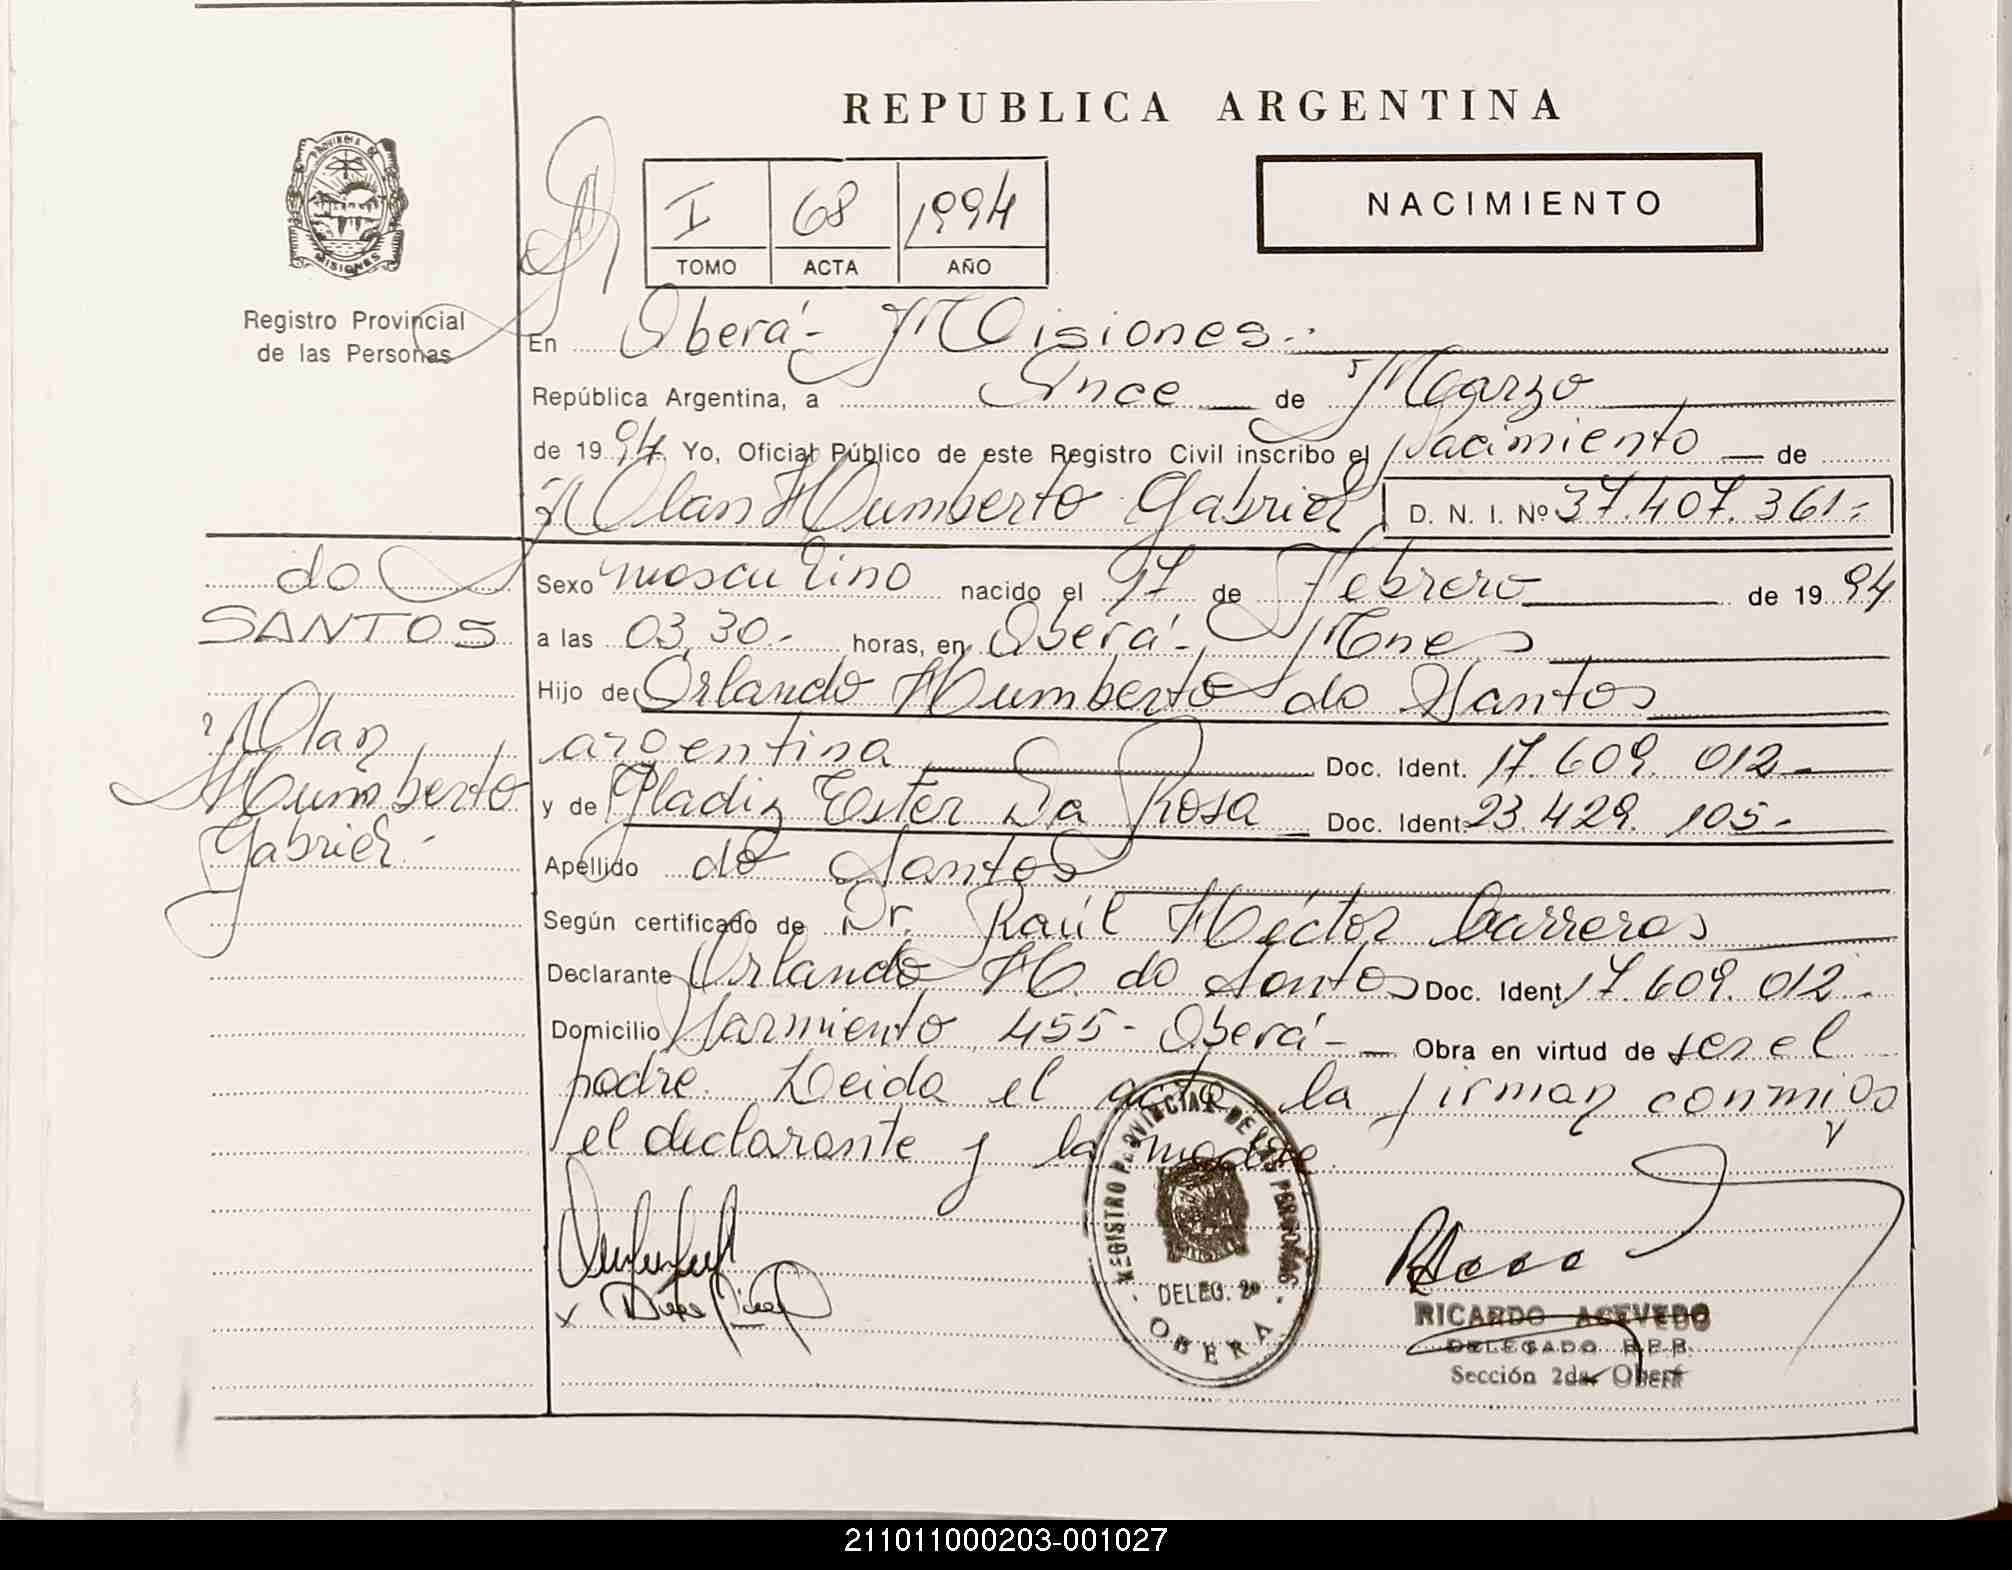 REPUBLICA ARGENTINA
PROVINCIA DE
MISIONES
Registro Provincial
de las Personas
I 68 1994
TOMO ACTA AÑO
NACIMIENTO
En Oberá - Misiones.-
República Argentina, a Once de Marzo
de 1994 Yo, Oficial Público de este Registro Civil inscribo el Nacimiento de
Alan Humberto Gabriel D. N. I. Nº 37.407.361.-
do
SANTOS
Alan
Humberto
Gabriel.-
Sexo masculino nacido el 17 de Febrero de 1994
a las 03,30.- horas, en Oberá - Mnes
Hijo de Orlando Humberto do Santos
argentina Doc. Ident. 17.609.012.-
y de Gladiz Ester Da Rosa Doc. Ident. 23.429.105.-
Apellido do Santos
Según certificado de Dr. Raúl Héctor Carreras
Declarante Orlando H. do Santos Doc. Ident. 17.609.012.-
Domicilio Sarmiento 455 - Oberá - Obra en virtud de ser el
padre. Leida el acta la firman conmigo
el declarante y la madre.
REGISTRO PROVINCIAL DE LAS PERSONAS
DELEG. 2º
OBERA
RICARDO ACEVEDO
DELEGADO R.P.P.
Sección 2da. Oberá
211011000203-001027